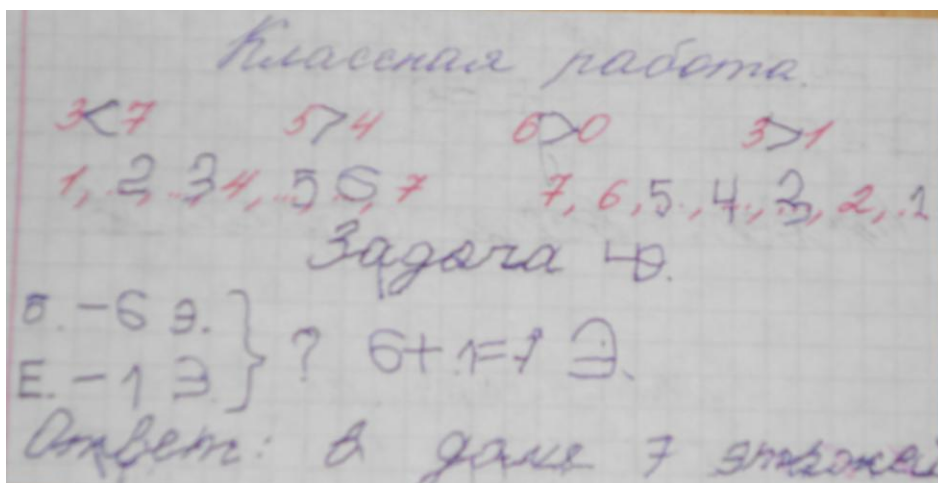 Классная работа.
3<7 5>4 6>0 3>1
1, 2, 3, 4, 5, 6, 7 7, 6, 5, 4, 3, 2, 1
Задача
Б. – 6 э. } ? 6+1=7 Э.
Е. – 1 Э.
Ответ: в доме 7 этажей